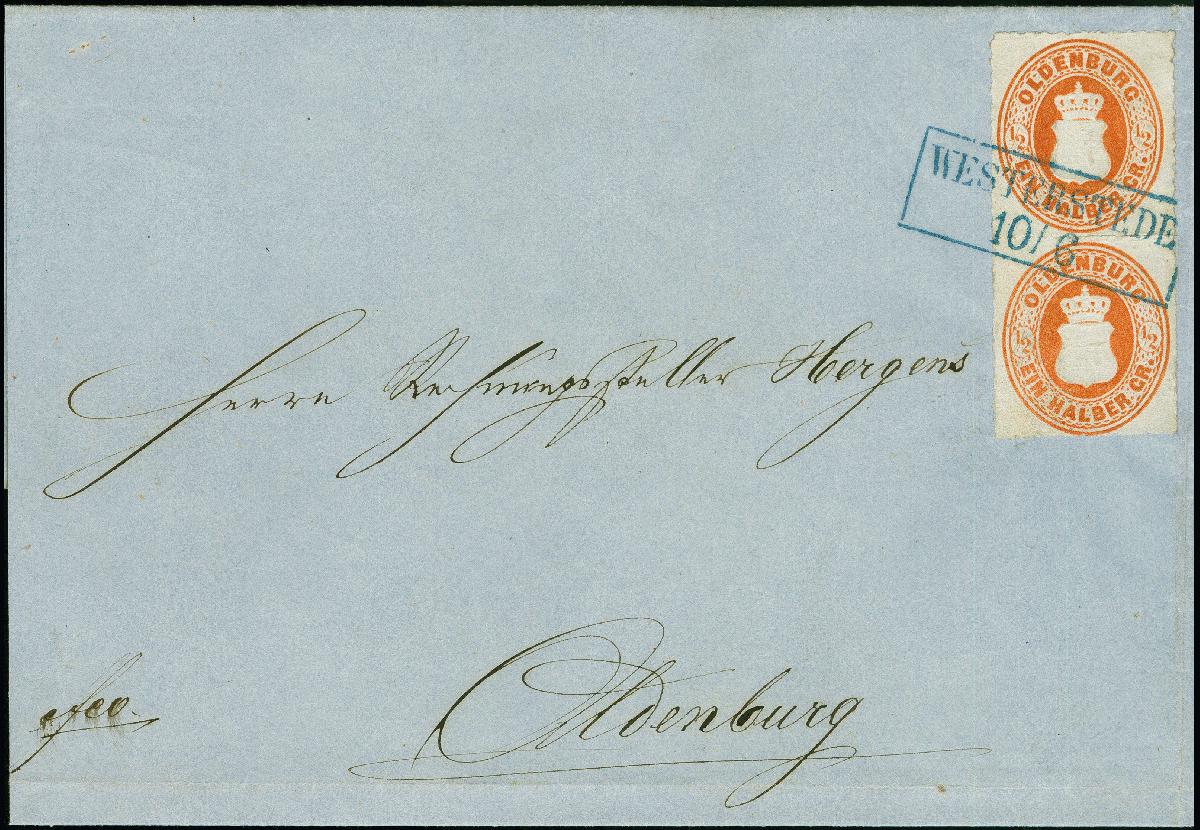 OLDENBURG
½ ½
EIN HALBER GR.
WESTERSTEDE
10/6
OLDENBURG
½ ½
EIN HALBER GR.
Herrn Rechnungssteller Hergens
fco.
Oldenburg